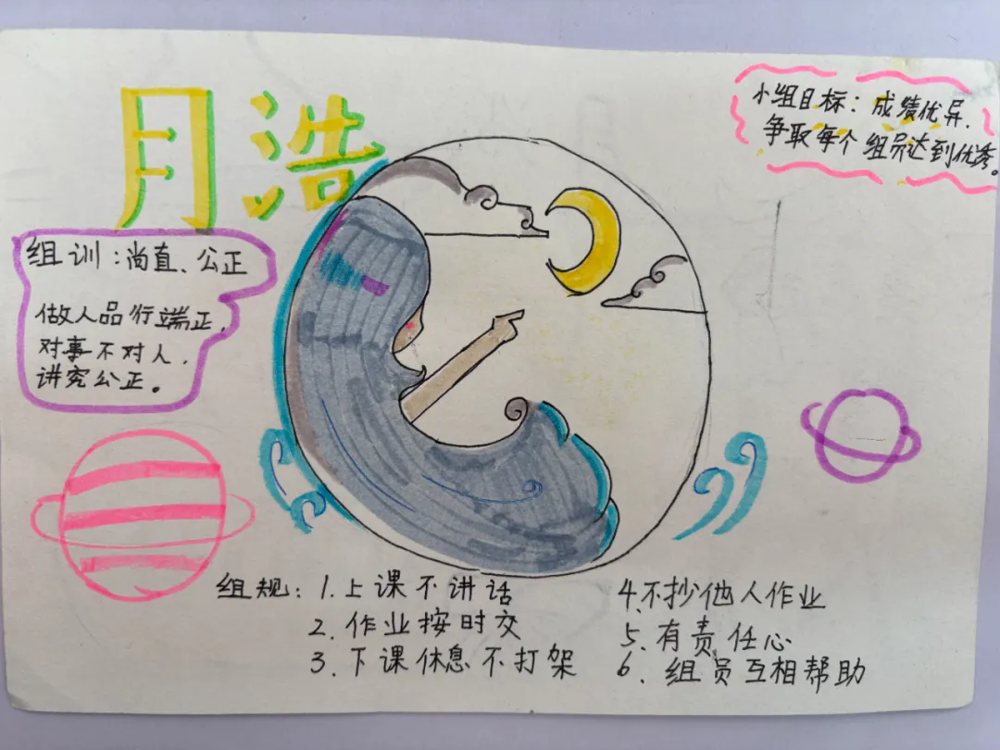 月浩
小组目标：成绩优异.
争取每个组员达到优秀。
组训：尚直、公正
做人品行端正,
对事不对人,
讲究公正。
组规：1.上课不讲话
2.作业按时交
3.下课休息不打架
4.不抄他人作业
5.有责任心
6.组员互相帮助